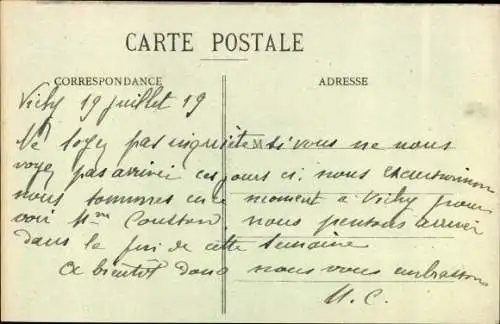 CARTE POSTALE
CORRESPONDANCE
ADRESSE
Vichy 19 juillet 19
Ne soyez pas inquiète si vous ne nous
voyez pas arriver ces jours ci, nous excursionnons
nous sommes en ce moment à Vichy pour
voir Mme nous pensons arriver
dans la fin de cette semaine
A bientôt donc nous vous embrassons
M. C.